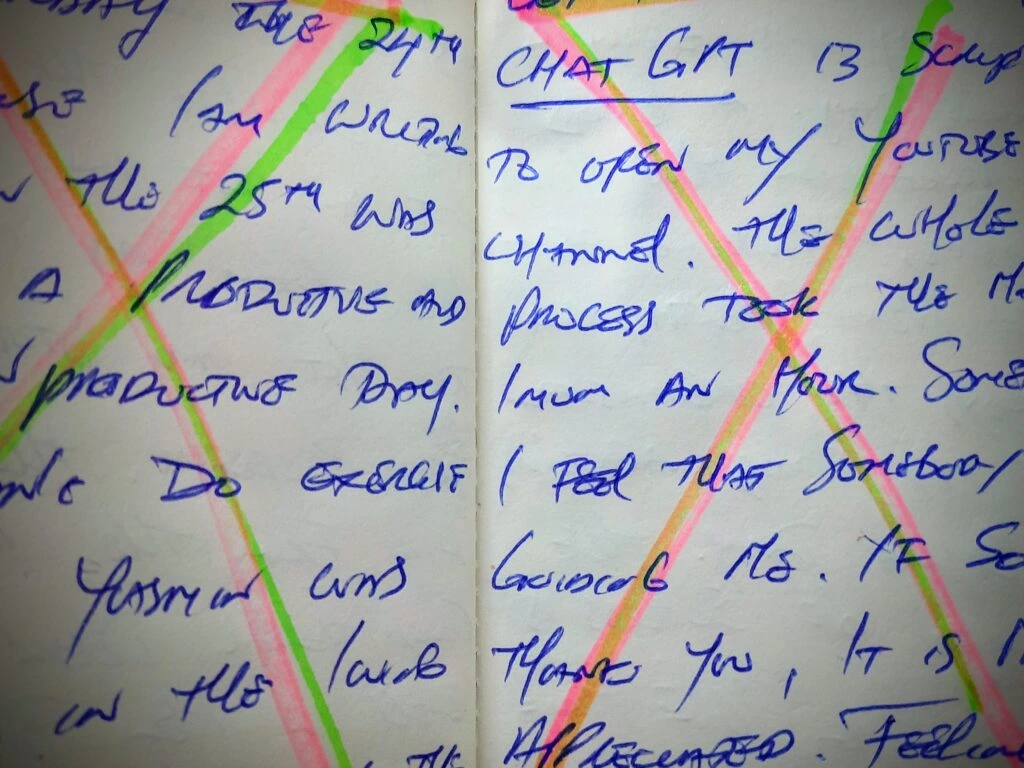 THE 24TH
I AM WRITING
THE 25TH WAS
A PRODUCTIVE AND
PRODUCTIVE DAY.
DO EXERCISE
YASMIN WAS
IN THE LIVING
THE
CHAT GPT
TO OPEN MY YOUTUBE
CHANNEL. THE WHOLE
PROCESS TOOK THE
IMUM AN HOUR. SOME
I FEEL THAT SOMEBODY
GUIDING ME. IF SO
THANK YOU, IT IS
APPRECIATED. FEEL